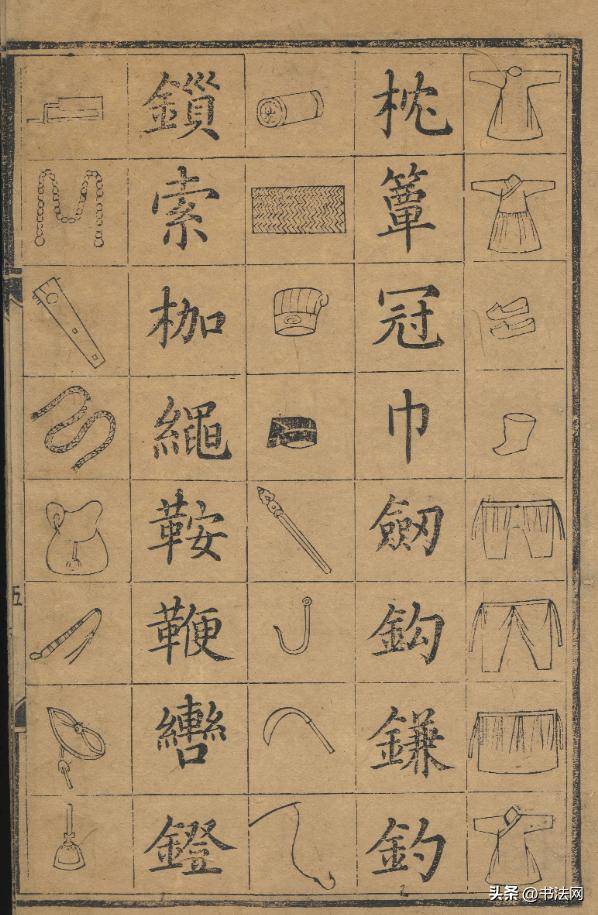 枕簟冠巾劒鈎鎌釣
鎻索枷繩鞍鞭轡鐙
五
头条 @书法网